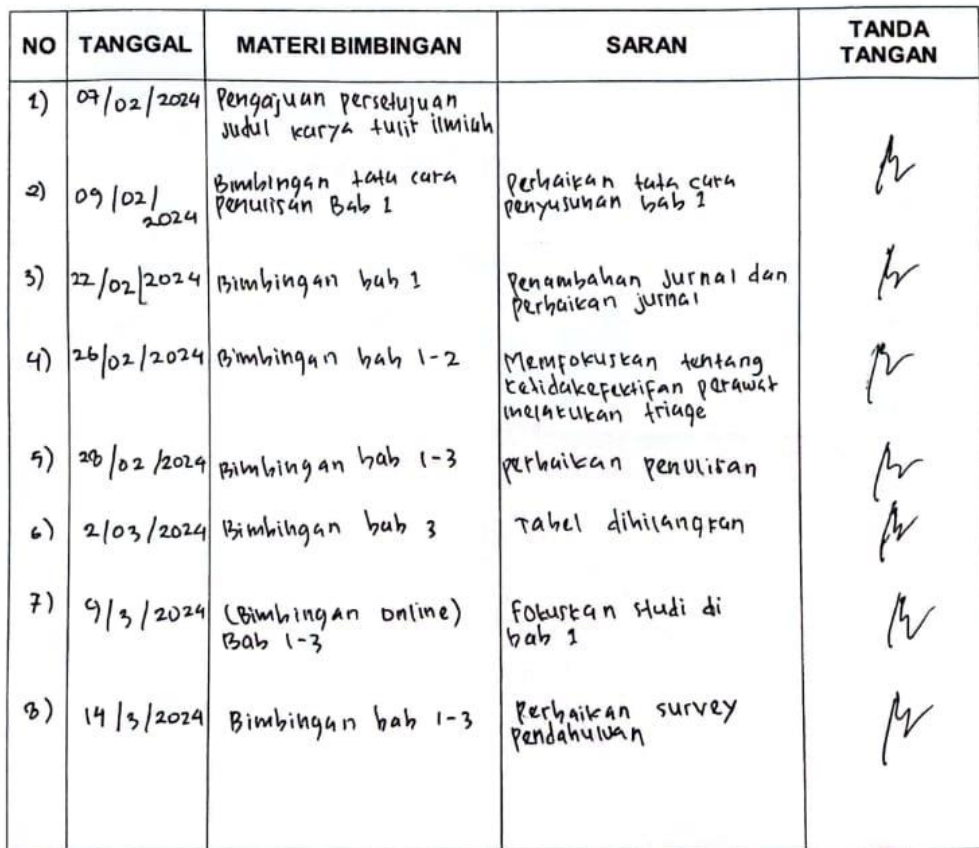 NO TANGGAL MATERI BIMBINGAN SARAN TANDA TANGAN
1) 07/02/2024 Pengajuan persetujuan
judul karya tulis ilmiah
2) 09/02/2024 Bimbingan tata cara
penulisan Bab 1
Perbaikan tata cara
penyusunan bab 1
3) 22/02/2024 Bimbingan bab 1
Penambahan Jurnal dan
perbaikan jurnal
4) 26/02/2024 Bimbingan bab 1-2
Memfokuskan tentang
ketidakefektifan perawat
melakukan triage
5) 28/02/2024 Bimbingan bab 1-3 perbaikan penulisan
6) 2/03/2024 Bimbingan bab 3 Tabel dihilangkan
7) 9/3/2024 (Bimbingan online)
Bab 1-3
Fokuskan studi di
bab 1
8) 14/3/2024 Bimbingan bab 1-3
Perbaikan survey
pendahuluan